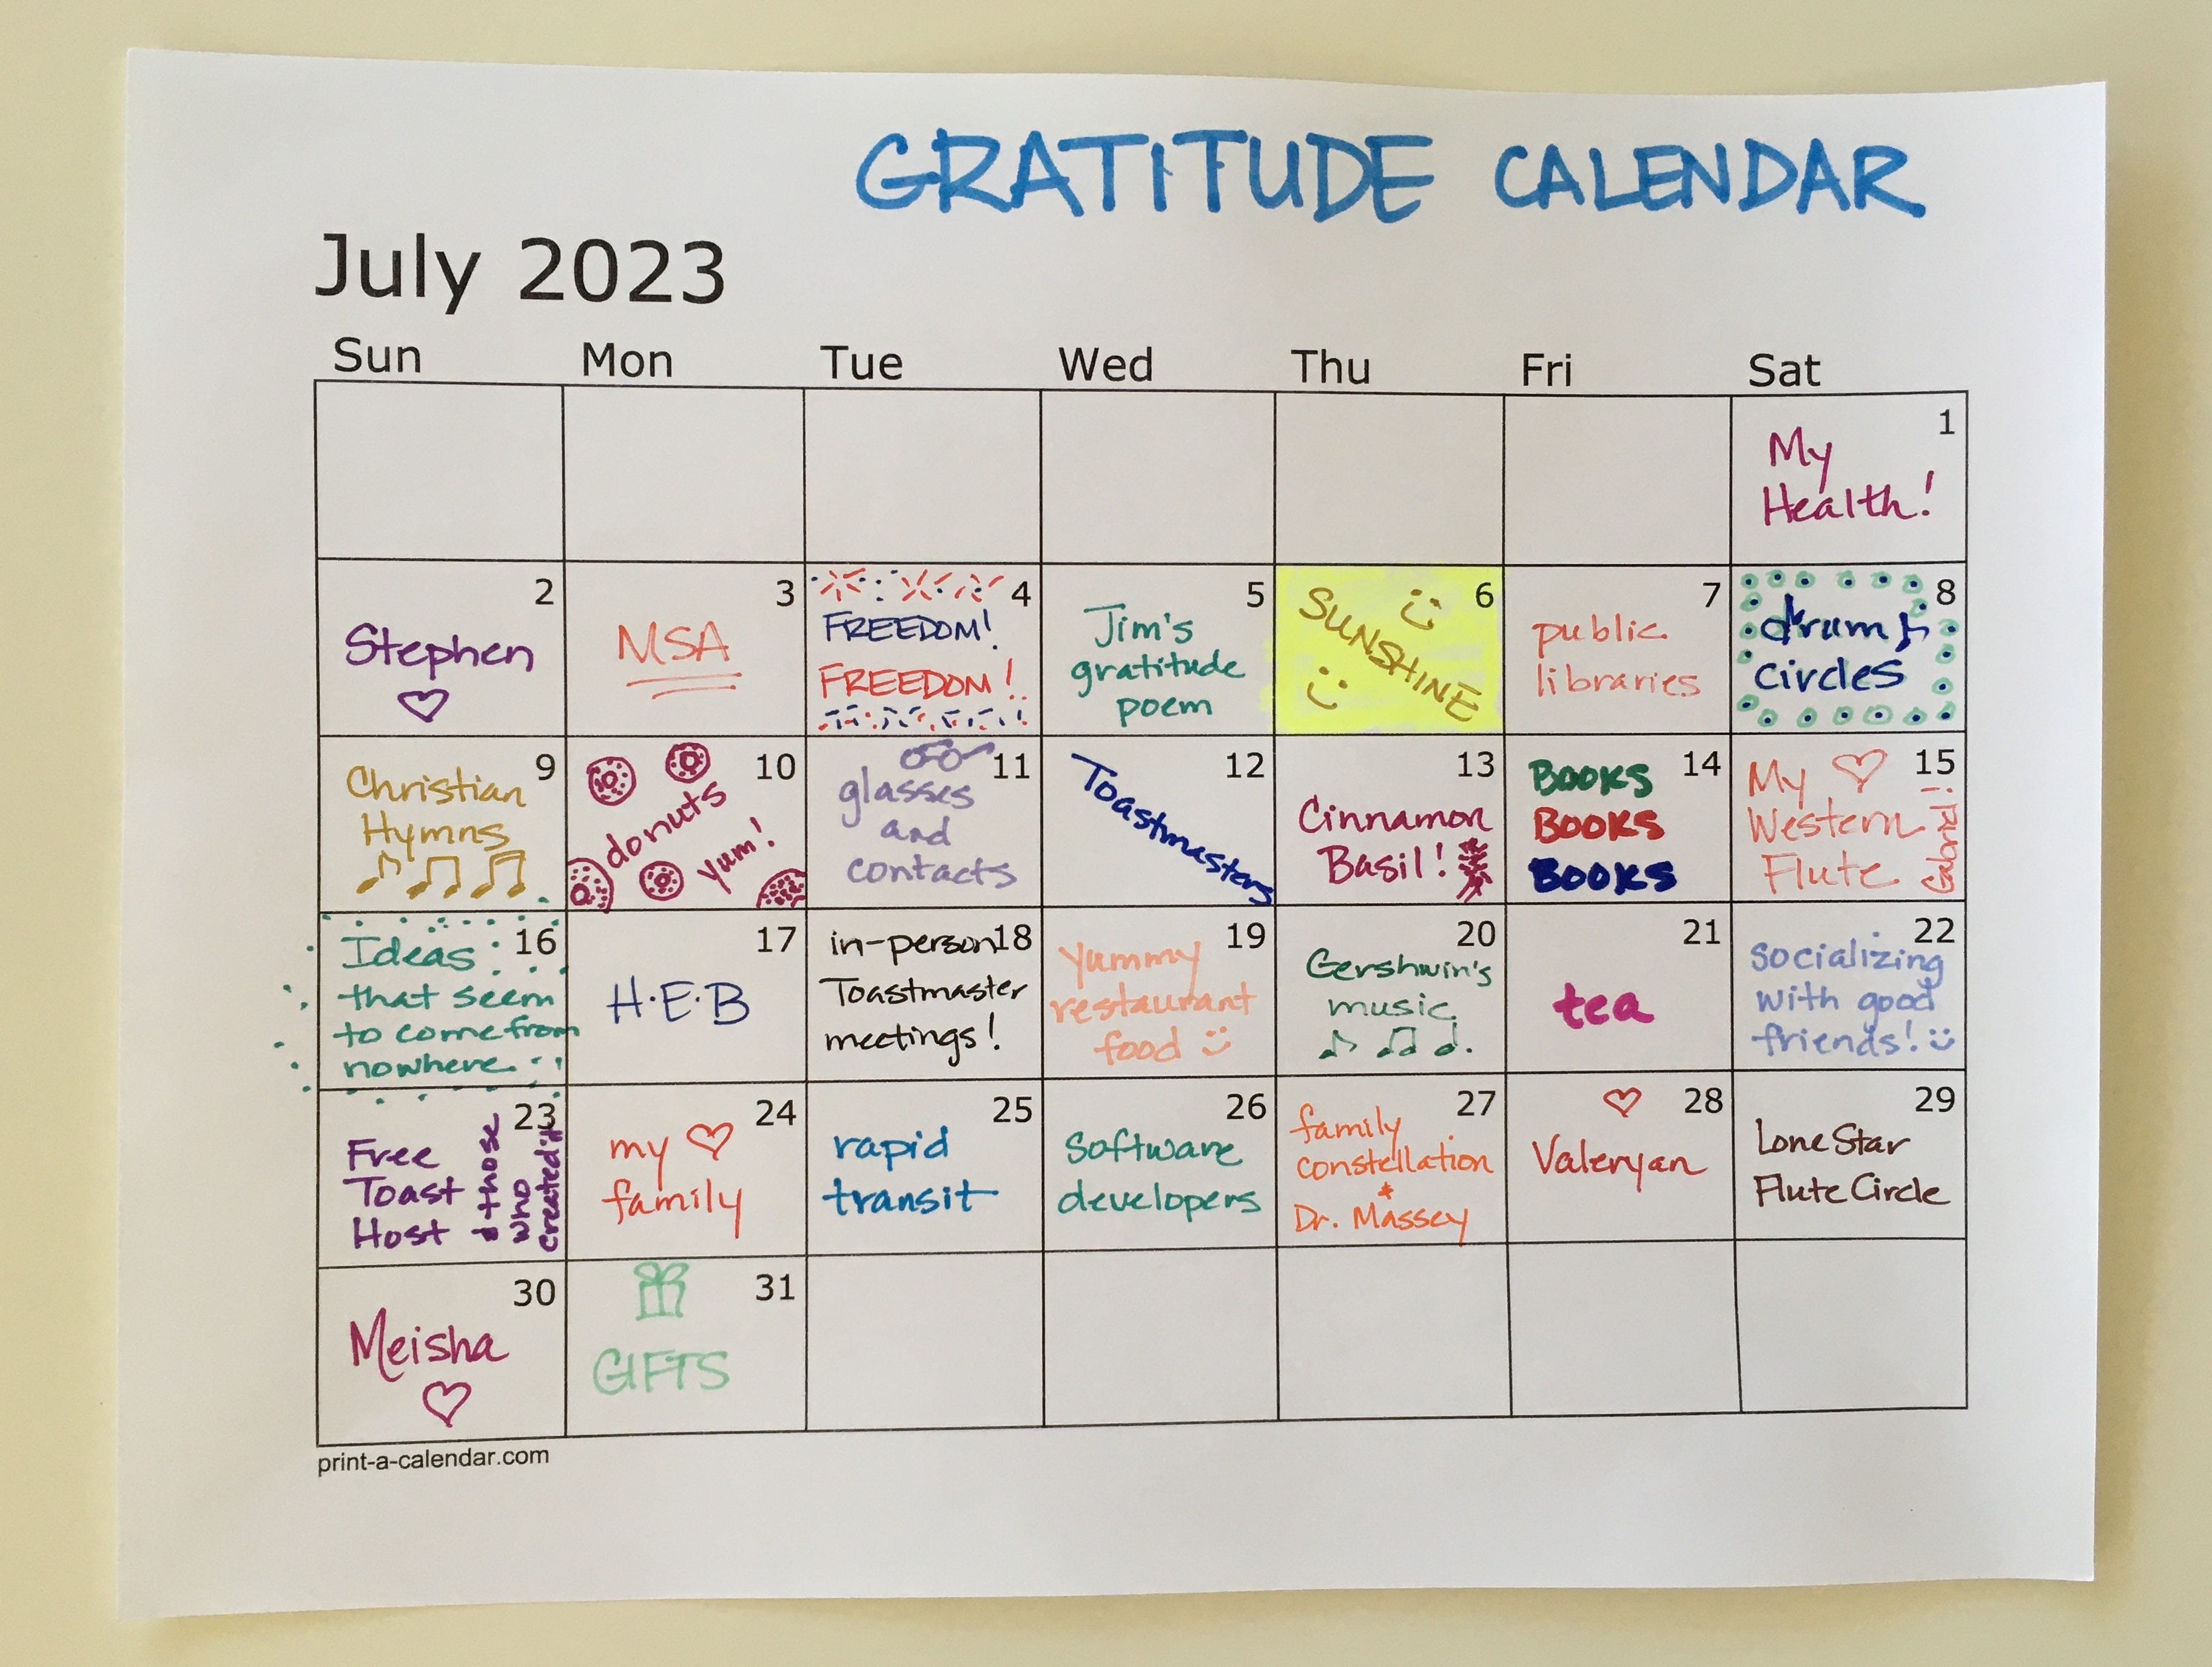 GRATITUDE CALENDAR
July 2023
Sun Mon Tue Wed Thu Fri Sat
1
My
Health!
2
Stephen
3
MSA
4
FREEDOM!
FREEDOM!
5
Jim's
gratitude
poem
6
SUNSHINE
7
public
libraries
8
drum
circles
9
Christian
Hymns
10
donuts
yum!
11
glasses
and
contacts
12
Toastmasters
13
Cinnamon
Basil!
14
BOOKS
BOOKS
BOOKS
15
My
Western
Flute
Gabriel!
16
Ideas
that seem
to come from
nowhere
17
H·E·B
18
in-person
Toastmaster
meetings!
19
yummy
restaurant
food
20
Gershwin's
music
21
tea
22
socializing
with good
friends!
23
Free
Toast
Host
& those
who
created it
24
my
family
25
rapid
transit
26
Software
developers
27
family
constellation
+
Dr. Massey
28
Valeryan
29
Lone Star
Flute Circle
30
Meisha
31
GIFTS
print-a-calendar.com